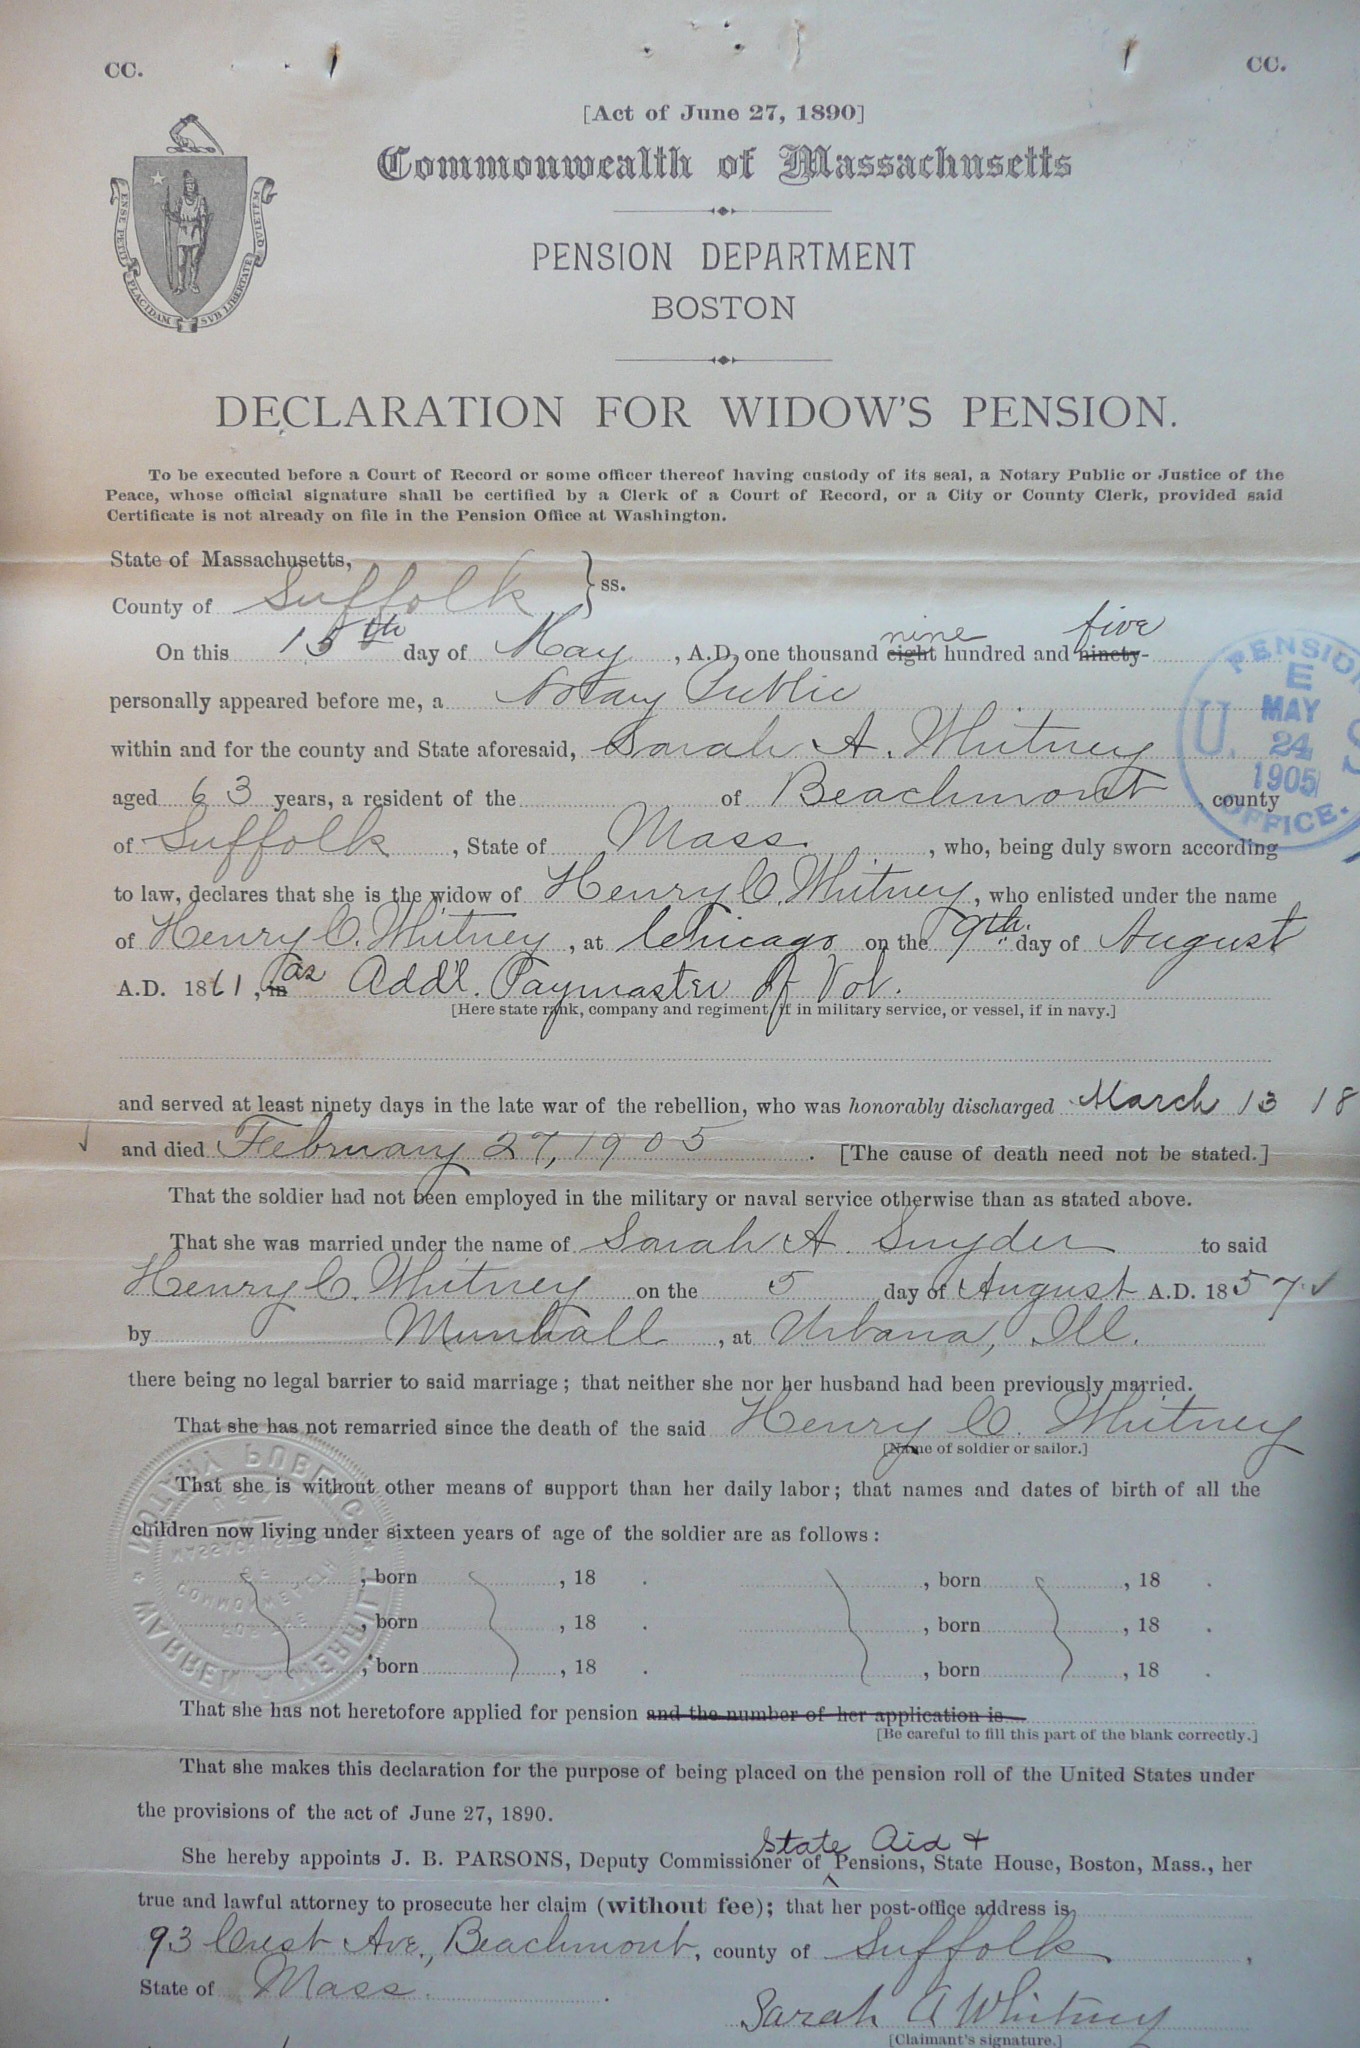 CC. CC.
[Act of June 27, 1890]
Commonwealth of Massachusetts
ENSE PETIT PLACIDAM SVB LIBERTATE QVIETEM
PENSION DEPARTMENT
BOSTON
DECLARATION FOR WIDOW'S PENSION.
To be executed before a Court of Record or some officer thereof having custody of its seal, a Notary Public or Justice of the
Peace, whose official signature shall be certified by a Clerk of a Court of Record, or a City or County Clerk, provided said
Certificate is not already on file in the Pension Office at Washington.
State of Massachusetts,
County of Suffolk } ss.
nine five
On this 15th day of May, A.D. one thousand eight hundred and ninety-
personally appeared before me, a Notary Public
within and for the county and State aforesaid, Sarah A. Whitney
aged 63 years, a resident of the of Beachmont, county
of Suffolk, State of Mass., who, being duly sworn according
to law, declares that she is the widow of Henry C. Whitney, who enlisted under the name
of Henry C. Whitney, at Chicago on the 9th. day of August
A.D. 1861, in as Add'l. Paymaster of Vol.
[Here state rank, company and regiment, if in military service, or vessel, if in navy.]
and served at least ninety days in the late war of the rebellion, who was honorably discharged March 13 18
and died February 27, 1905. [The cause of death need not be stated.]
That the soldier had not been employed in the military or naval service otherwise than as stated above.
That she was married under the name of Sarah A. Snyder to said
Henry C. Whitney on the 5 day of August A.D. 1857.
by Munhall, at Urbana, Ill.
there being no legal barrier to said marriage; that neither she nor her husband had been previously married.
That she has not remarried since the death of the said Henry C. Whitney
[Name of soldier or sailor.]
That she is without other means of support than her daily labor; that names and dates of birth of all the
children now living under sixteen years of age of the soldier are as follows:
, born , 18 . , born , 18 .
, born , 18 . , born , 18 .
, born , 18 . , born , 18 .
That she has not heretofore applied for pension and the number of her application is
[Be careful to fill this part of the blank correctly.]
That she makes this declaration for the purpose of being placed on the pension roll of the United States under
the provisions of the act of June 27, 1890.
State Aid +
She hereby appoints J. B. PARSONS, Deputy Commissioner of Pensions, State House, Boston, Mass., her
true and lawful attorney to prosecute her claim (without fee); that her post-office address is
93 Crest Ave., Beachmont, county of Suffolk,
State of Mass.
Sarah A Whitney
[Claimant's signature.]
PENSION
E
MAY
U. 24 S
1905
OFFICE.
NOTARY PUBLIC
COMMONWEALTH
MASSACHUSETTS